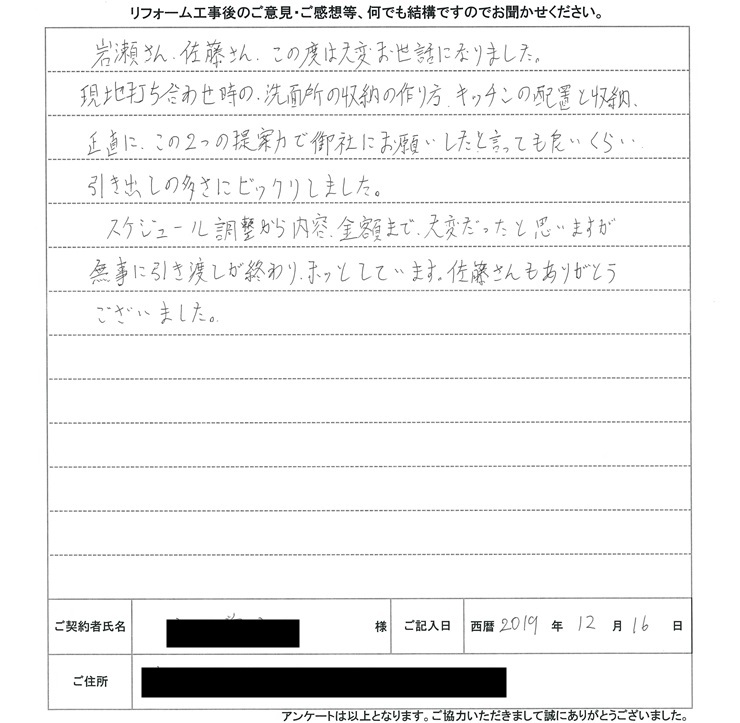 リフォーム工事後のご意見・ご感想等、何でも結構ですのでお聞かせください。
岩瀬さん、佐藤さん、この度は大変お世話になりました。
現地打ち合わせ時の、洗面所の収納の作り方、キッチンの配置と収納、
正直に、この2つの提案力で御社にお願いしたと言っても良いくらい、
引き出しの多さにビックリしました。
スケジュール調整から内容、金額まで、大変だったと思いますが
無事に引き渡しが終わり、ホッとしています。佐藤さんもありがとう
ございました。
ご契約者氏名 様 ご記入日 西暦 2019 年 12 月 16 日
ご住所
アンケートは以上となります。ご協力いただきまして誠にありがとうございました。